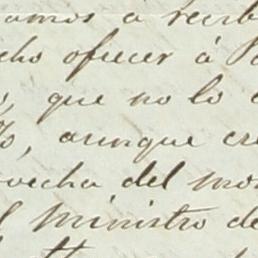 amos a recib
cho ofrecer á
, que no lo
%, aunque cre
ovecha del mo
l ministro de